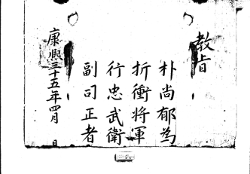 教旨
朴尚郁為
折衝將軍
行忠武衛
副司正者
康熙三十五年四月 日